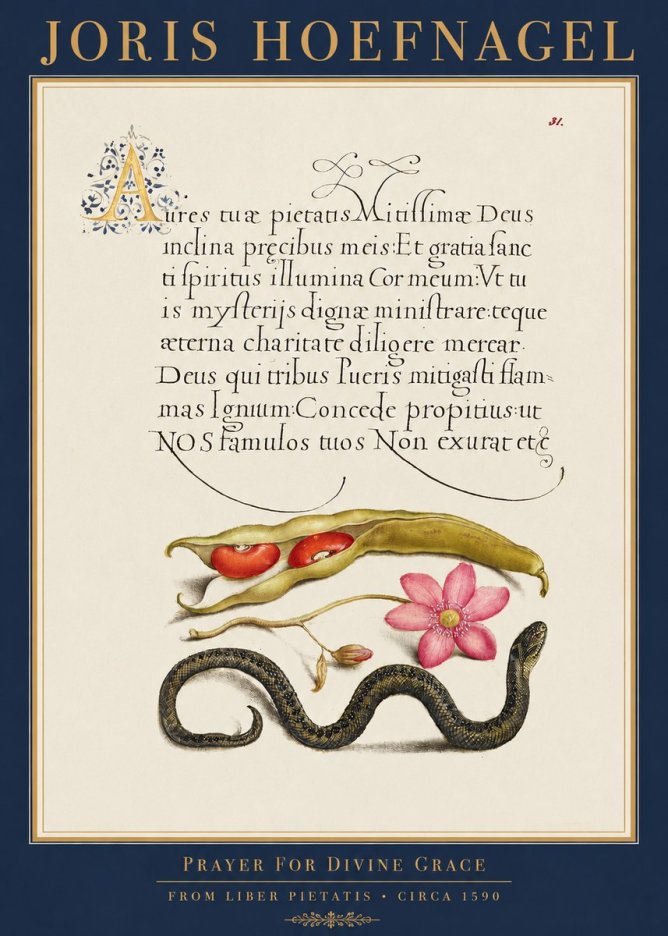 JORIS HOEFNAGEL
31.
Aures tuæ pietatis Mitiſſimæ Deus
inclina pręcibus meis: Et gratia ſanc
ti ſpiritus illumina Cor meum: Vt tu
is myſterijs dignæ miniſtrare: teque
æterna charitate diligere merear.
Deus qui tribus Pueris mitigaſti flam=
mas Ignium: Concede propitius: ut
NOS famulos tuos Non exurat et&
PRAYER FOR DIVINE GRACE
FROM LIBER PIETATIS • CIRCA 1590